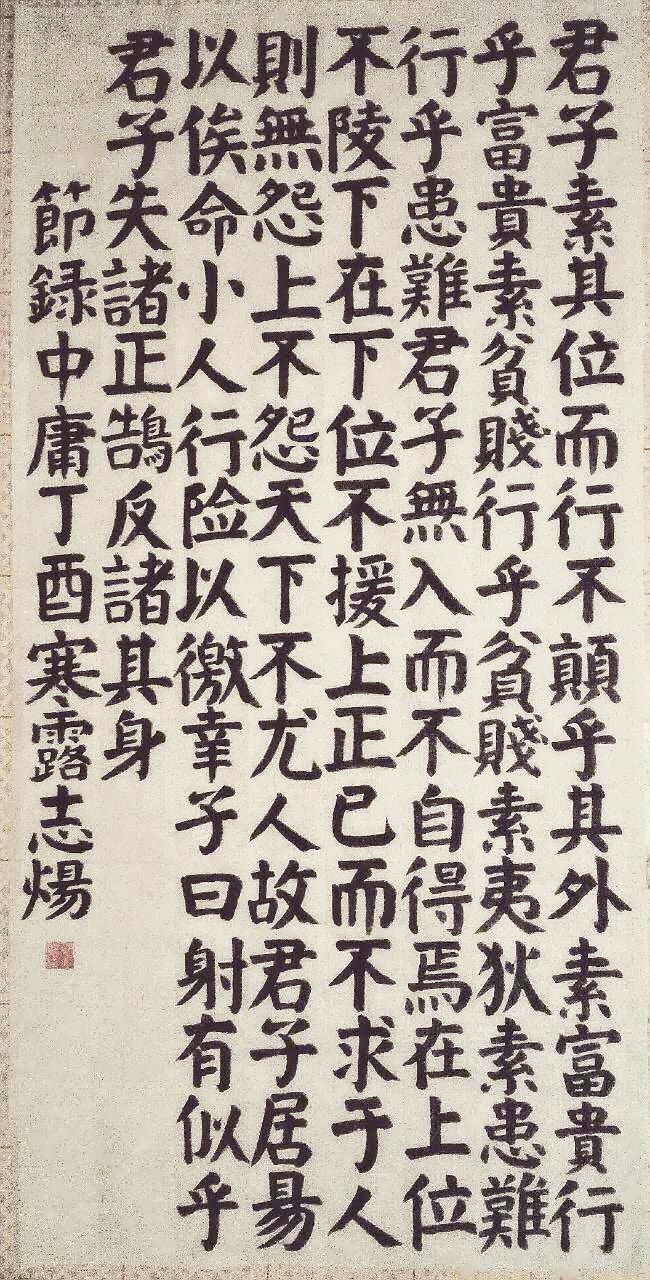 君子素其位而行不顛乎其外素富貴行
乎富貴素貧賤行乎貧賤素夷狄素患難
行乎患難君子無入而不自得焉在上位
不陵下在下位不援上正已而不求于人
則無怨上不怨天下不尤人故君子居昜
以俟命小人行险以徼幸子曰射有似乎
君子失諸正鵠反諸其身
節録中庸丁酉寒露志煬